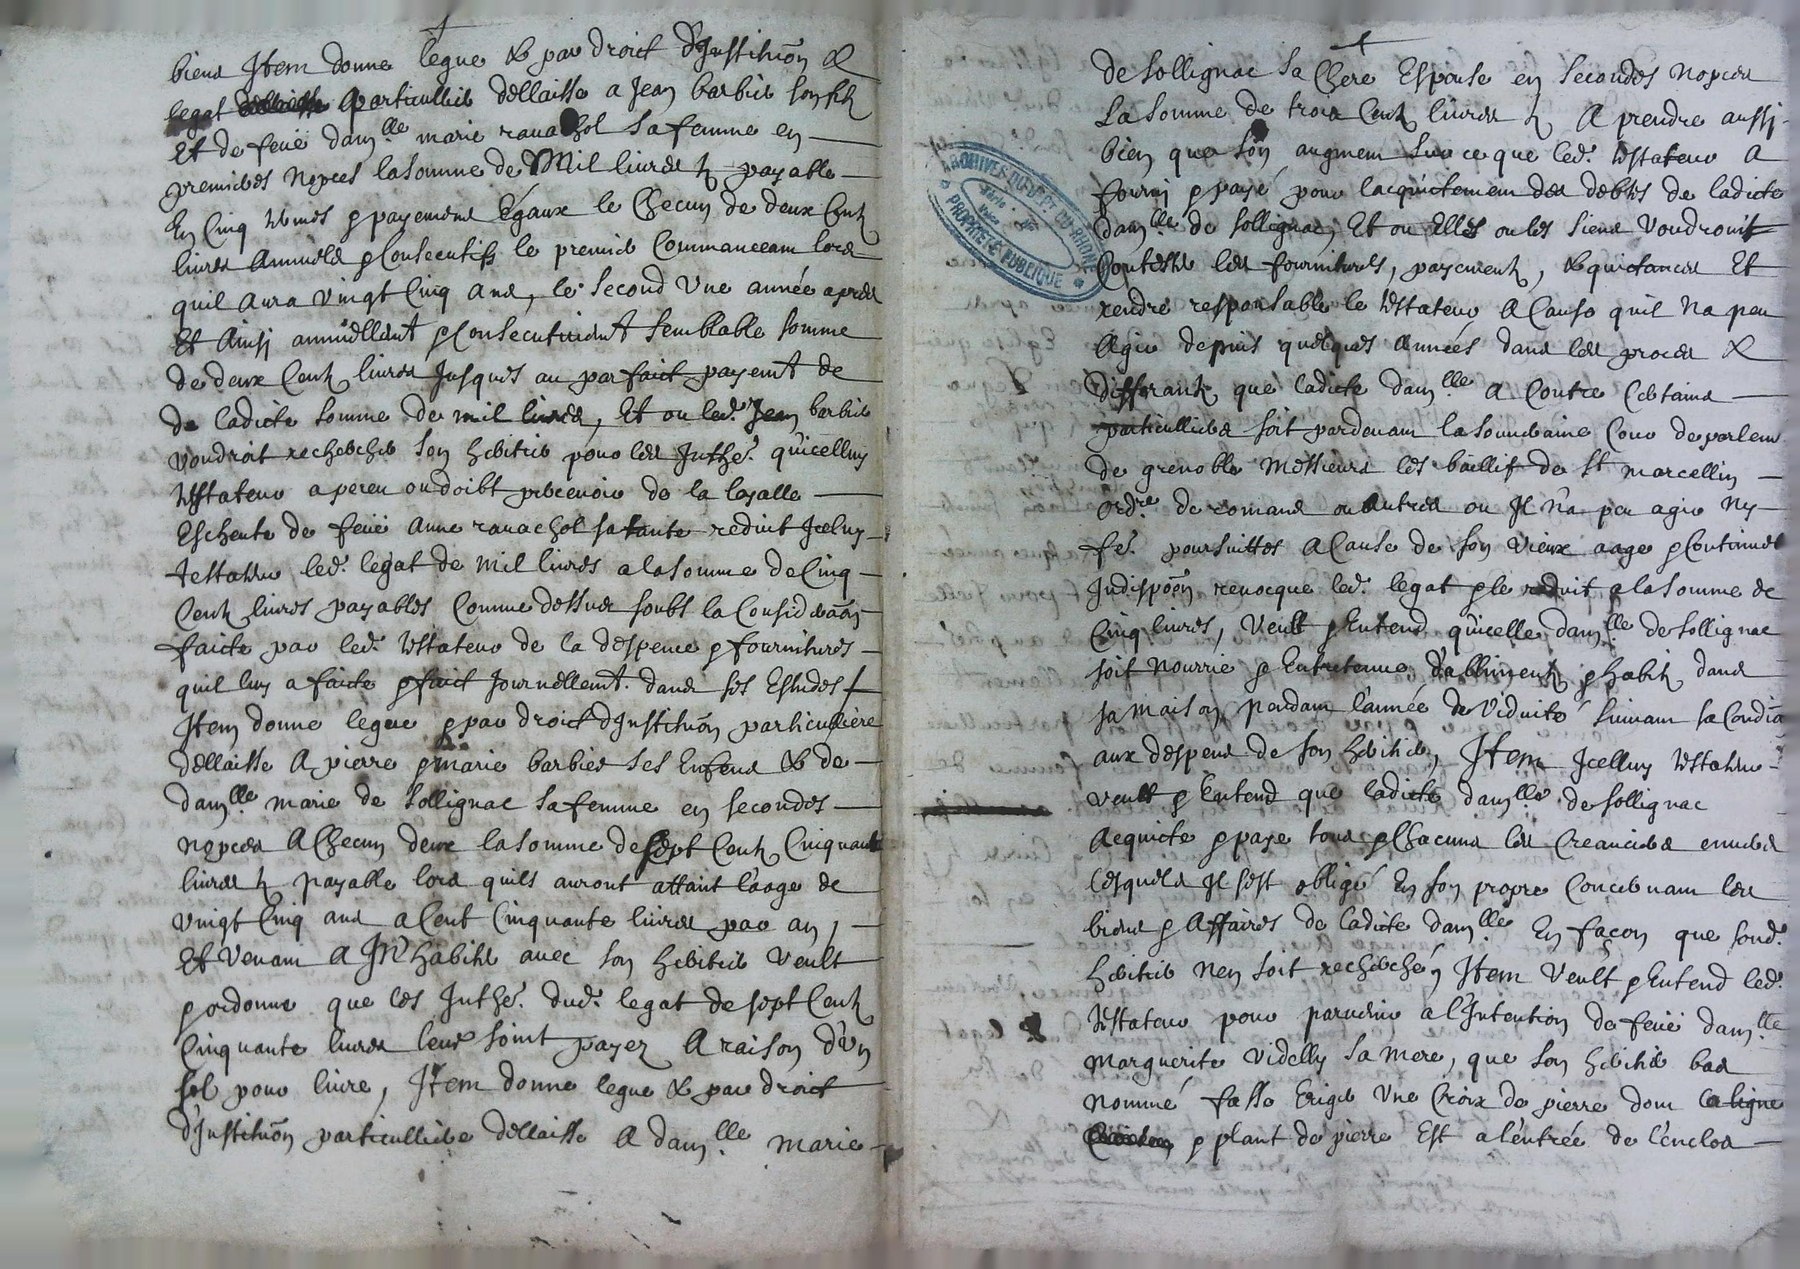 biens Item donne legue & par droict d'Institu͠on &
legat particullier dellaisse a Jean barbier son filz
Et de feüe dam.lle marie rauachol sa femme en
premieres Nopces la somme de Mil liures tz payable
En Cinq termes & payemens Égaux le Checun de deux Centz
liures Annuels & Consecutifz le premier Commanceam lors
quil Aura Vingt Cinq Ans, le Second Vne année apres
Et Ainsj annuellem.t & Consecutiuem.t Semblable somme
de deux Centz liures Jusques au parfaict payem.t de
de ladicte somme de mil liures, Et ou led. Jean barbier
voudroit rechercher Son heritier pour les Inthe. quicelluy
testateur a perceu ou doibt perceuoir de la
Escheute de feüe Anne rauachol sa tante reduit Icelluy
testateur led. legat de mil liures a la somme de Cinq
Centz liures payables Comme dessus soubs la Considera͠on
faicte par led. testateur de la despence & fournitures
quil luy a faicte & faict Journellem.t dans ses Estudes
Item donne legue & par droict d'Institu͠on particulliere
dellaisse A pierre & marie barbier ses Enfens & de
dam.lle marie de Sollignac sa femme en secondes
nopces A Checun deux la somme de Sept Centz Cinquante
liures tz payable lors quils auront attaint l'aage de
vingt Cinq ans a Cent Cinquante liures par an,
Et Venam A habiter auec son heritier veult
& ordonne que les Inthe. dud. legat de sept Centz
Cinquante liures leur soint payez A raison d'vn
sol pour liure, Item donne legue & par droict
d'Institu͠on particulliere dellaisse A dam.lle marie
de Sollignac sa Chere Espouse en Secondes Nopces
La somme de trois Centz liures tz A prendre aussj
bien que son augment sur ce que led. testateur A
fourny & payé pour lacquictement des debtes de ladicte
dam.lle de Sollignac, Et ou Elles ou les Siens Voudroint
Contester les fournitures, payementz, & quictances Et
rendre responsable le testateur A Cause quil Na peu
Agir depuis quelques Années dans les proces &
differantz que ladicte dam.lle A Contre Certains
particulliers soit pardeuam la Souueraine Cour de parlem
de grenoble Messieurs les baillif de St marcellin
ord.re de romans ou Autres ou Jl N'a peu agir Ny
fe. poursuittes A Cause de son Vieux aage & Continuel
Indispo͠on reuocque led. legat & le reduit a la somme de
Cinq liures, Veult & Entend quicelle dam.lle de Sollignac
soit Nourrie & Entretenue d'allimentz & habitz dans
sa Maison pendam l'année de Viduité Suiuam sa Condi͠on
aux despens de son heritier, Item Icelluy testateur
veult & Entend que ladicte dam.lle de Sollignac
Acquicte & paye tous & Chacuns les Creanciers enuers
lesquels Jl s'est obligé En son propre Concernam les
biens & Affaires de ladicte dam.lle En façon que sond.
heritier Nen soit recherché, Item Veult & Entend led.
testateur pour paruenir a l'Intention de feüe dam.lle
Marguerite Videlly Sa Mere, que son heritier bas
Nommé fasse Eriger Vne Croix de pierre dont
& plant de pierre Est a l'entrée de l'enclos
ARCHIVES DU DEPT DU RHONE
PROPRIETE PUBLIQUE